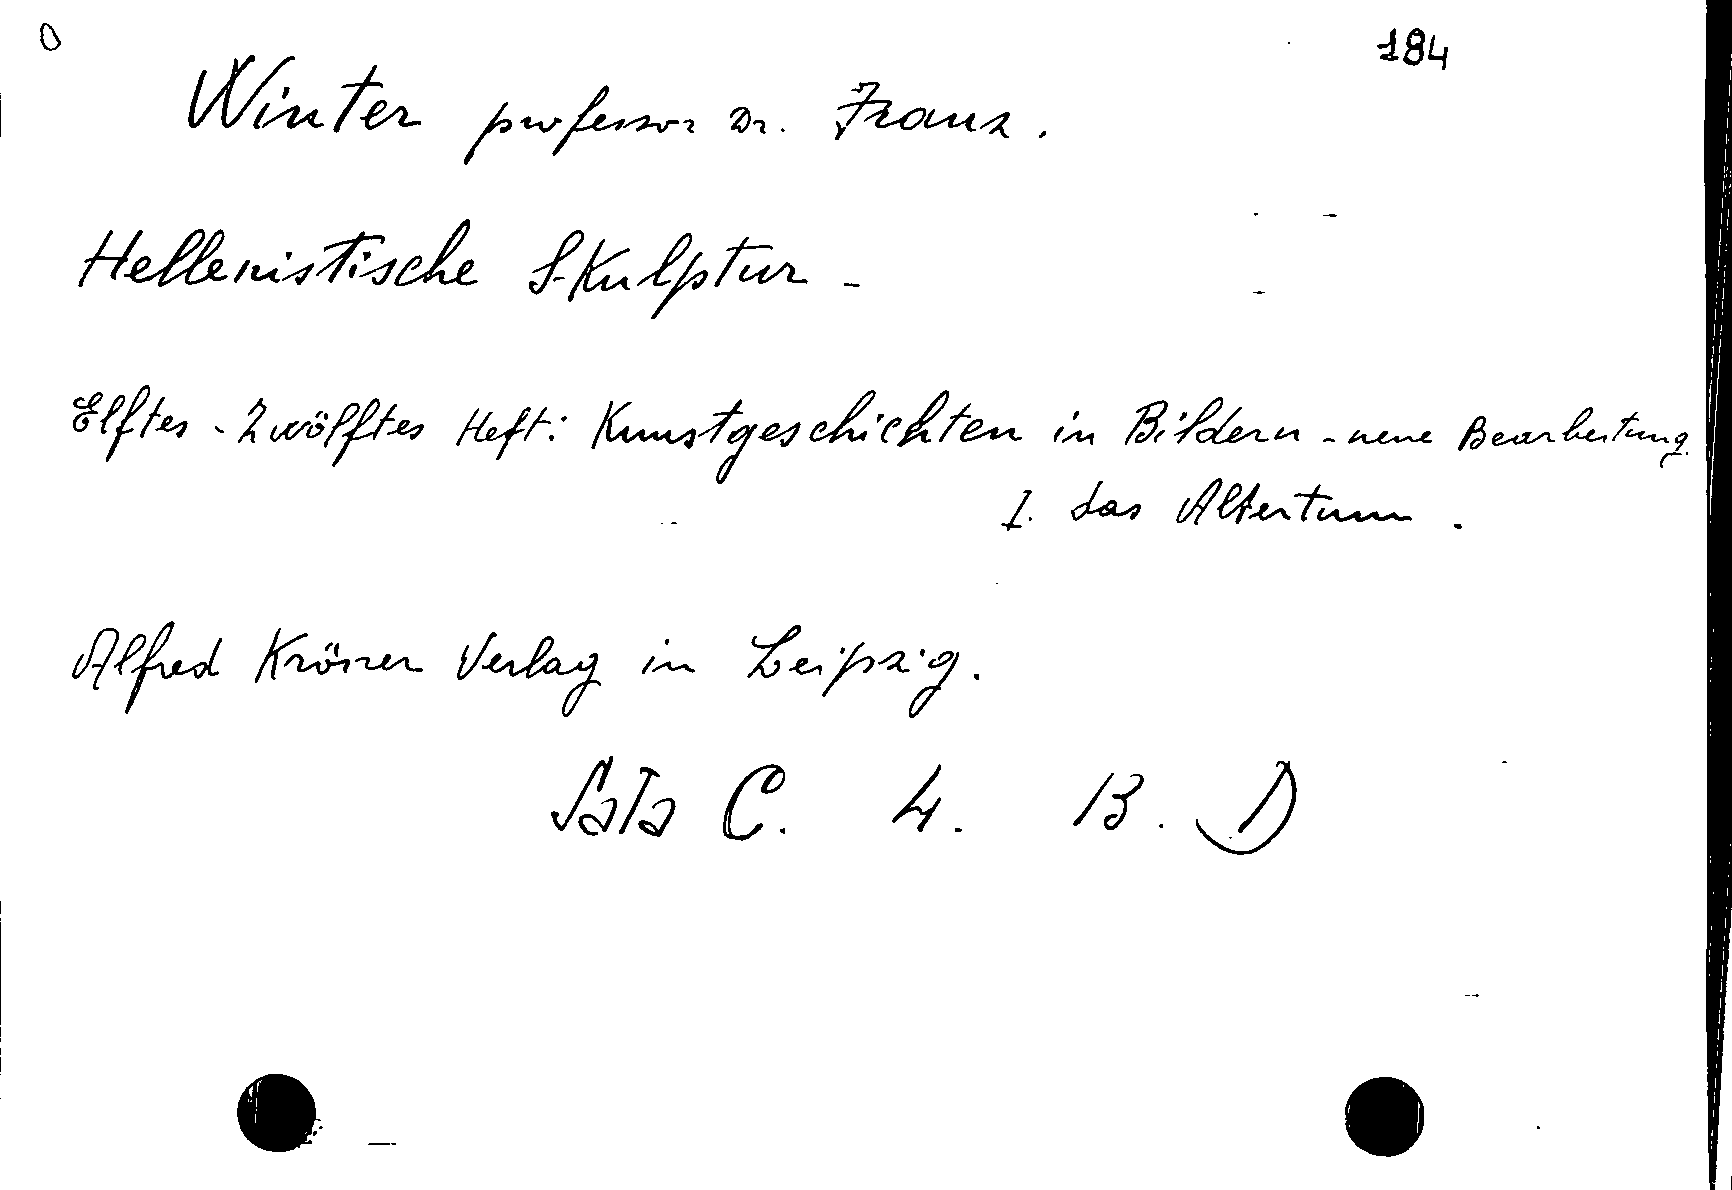 0
184
Winter professor Dr. Franz.
Hellenistische Skulptur -
Elftes - Zwölftes Heft: Kunstgeschichten in Bildern - neue Bearbeitung.
I. das Altertum.
Alfred Kröner Verlag in Leipzig.
Sala C. 4. B. D